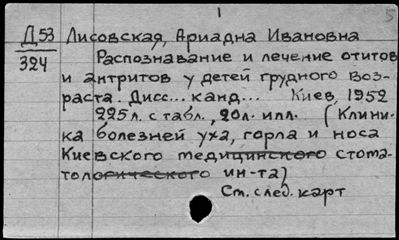 1
5
Д53 Лисовская, Ариадна Ивановна
324
Распознавание и лечение отитов
и антритов у детей грудного воз-
раста. Дисс... канд... Киев, 1952
225л. с табл., 20л. илл. (Клини-
ка болезней уха, горла и носа
Киевского медицинского стома-
тологического ин-та)
См. след. карт